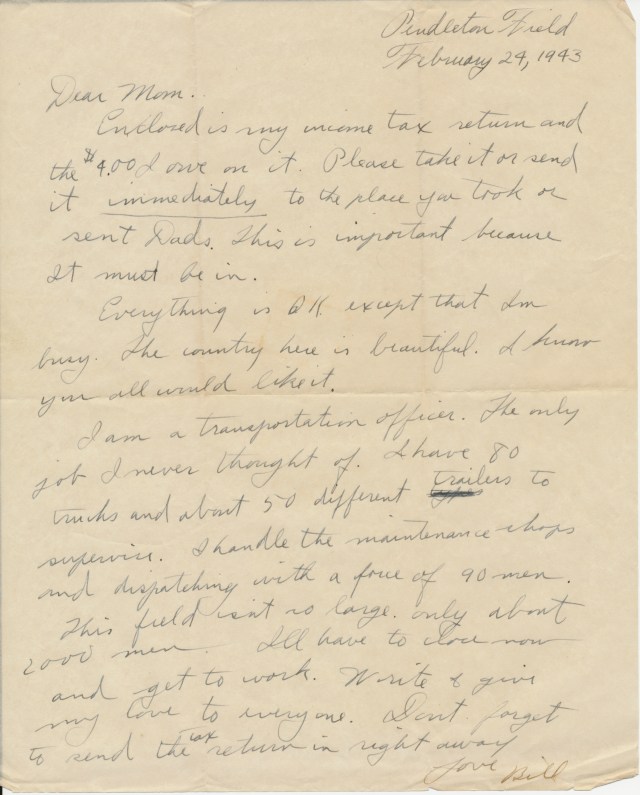 Pendleton Field
February 24, 1943
Dear Mom.
Enclosed is my income tax return and
the $4.00 I owe on it. Please take it or send
it immediately to the place you took or
sent Dads. This is important because
it must be in.
Everything is OK except that Im
busy. The country here is beautiful. I know
you all would like it.
I am a transportation officer. The only
job I never thought of. I have 80
trucks and about 50 different trailers to
supervise. I handle the maintenance shops
and dispatching with a force of 90 men.
This field isn't so large. only about
2000 men. I'll have to close now
and get to work. Write & give
my love to everyone. Dont forget
to send the tax return in right away
Love Bill